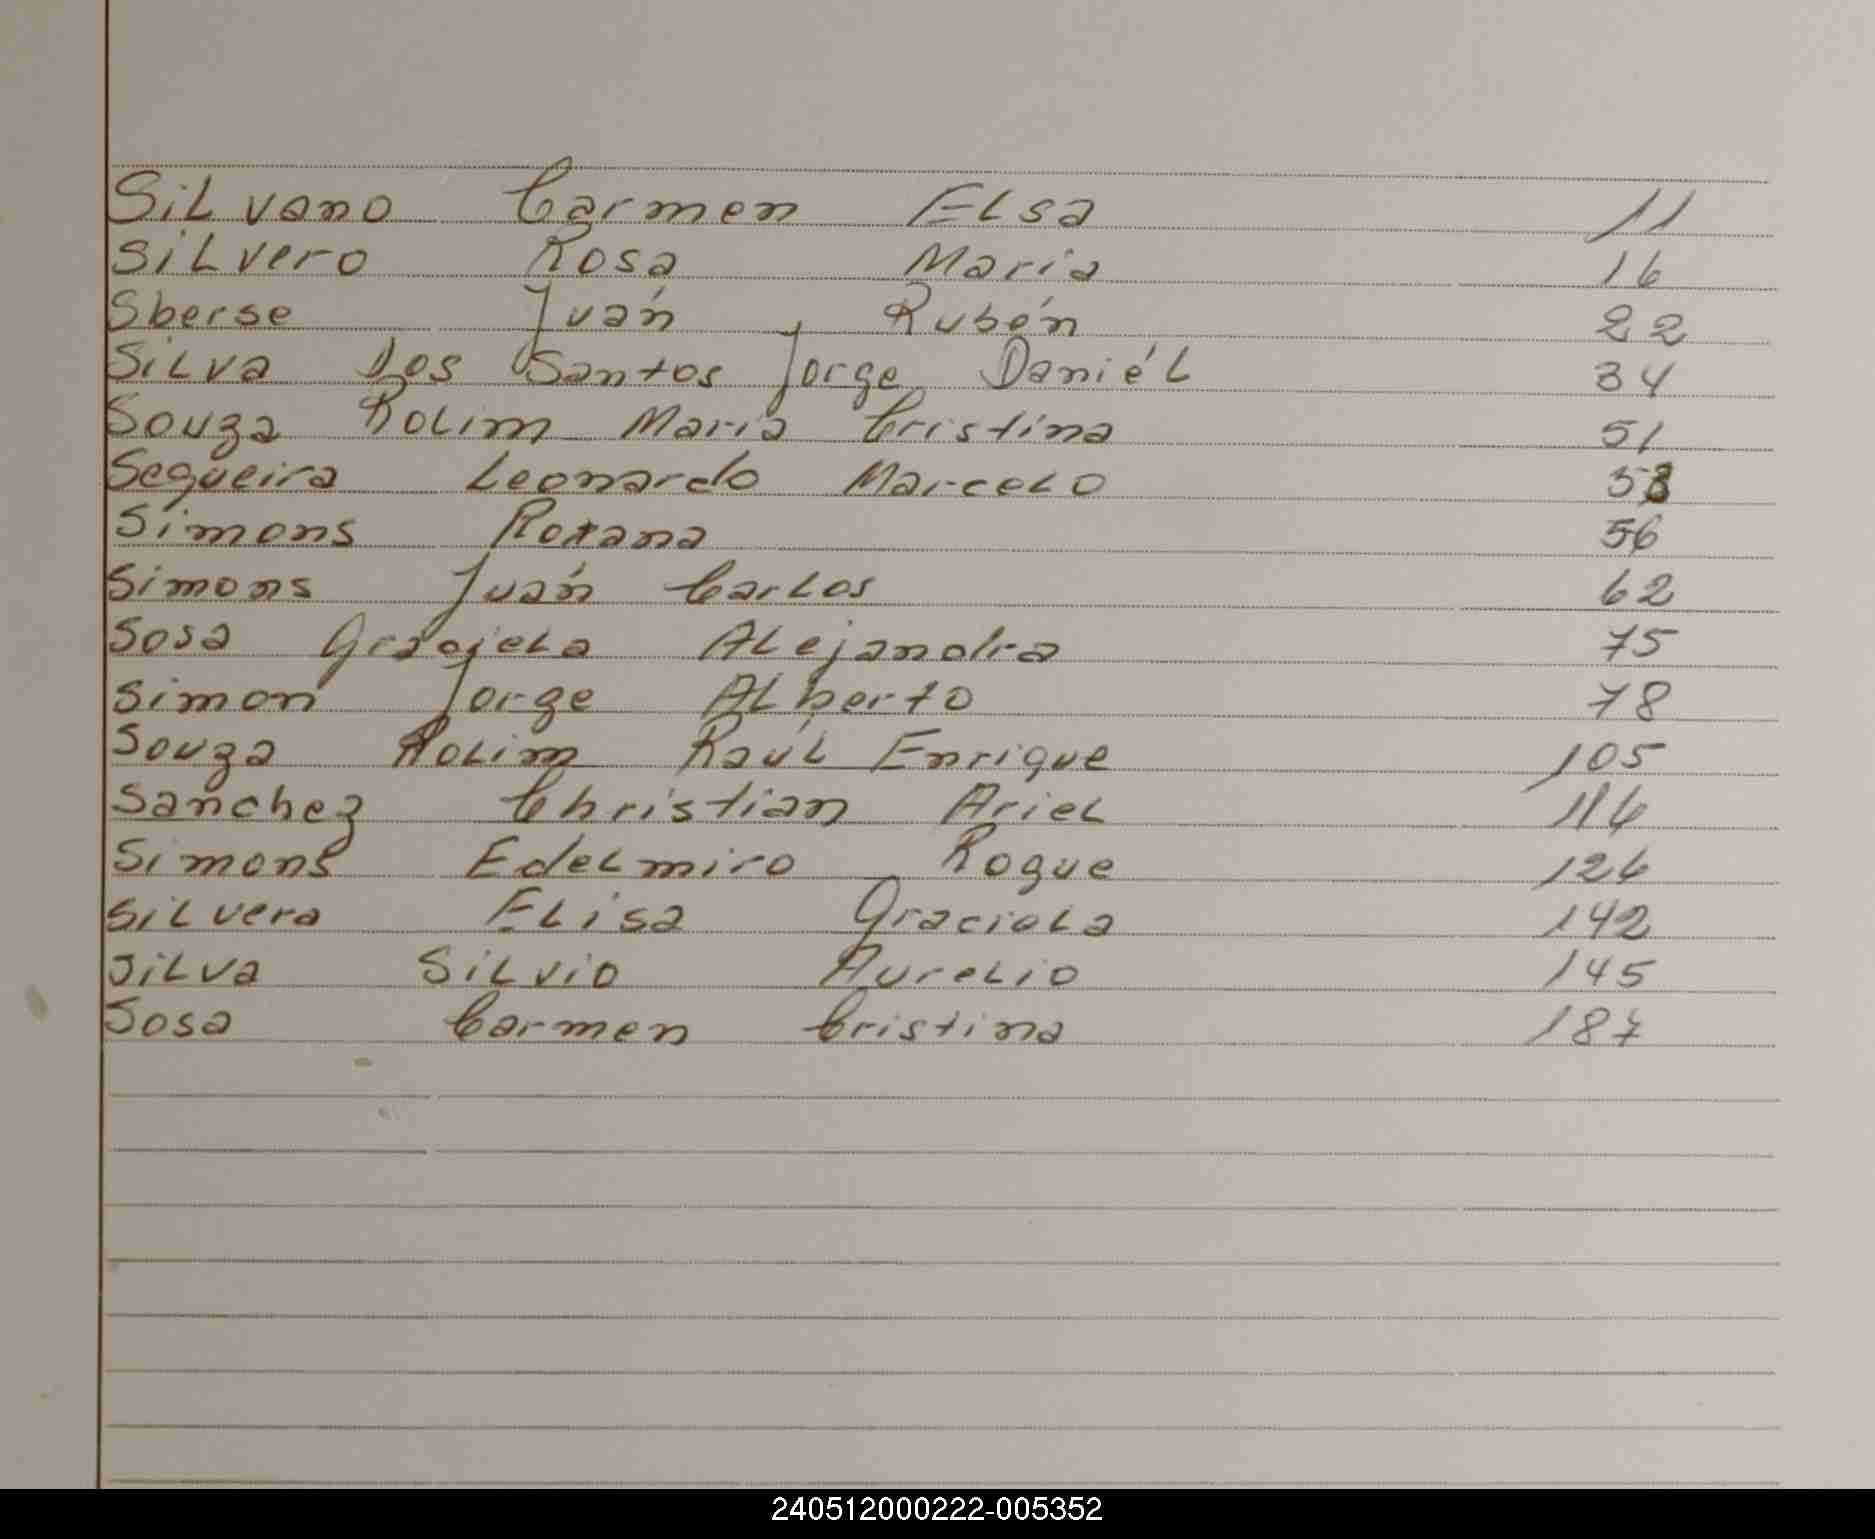 Silvano Carmen Elsa 11
Silvero Rosa Maria 16
Sberse Juán Rubén 22
Silva Dos Santos Jorge Daniél 34
Souza Rolim Maria Cristina 51
Segueira Leonardo Marcelo 53
Simons Roxana 56
Simons Juán Carlos 62
Sosa Graciela Alejandra 75
Simon Jorge Alberto 78
Souza Rolim Raúl Enrique 105
Sanchez Christian Ariel 116
Simons Edelmiro Roque 126
Silvera Elisa Graciela 142
Silva Silvio Aurelio 145
Sosa Carmen Cristina 187
240512000222-005352